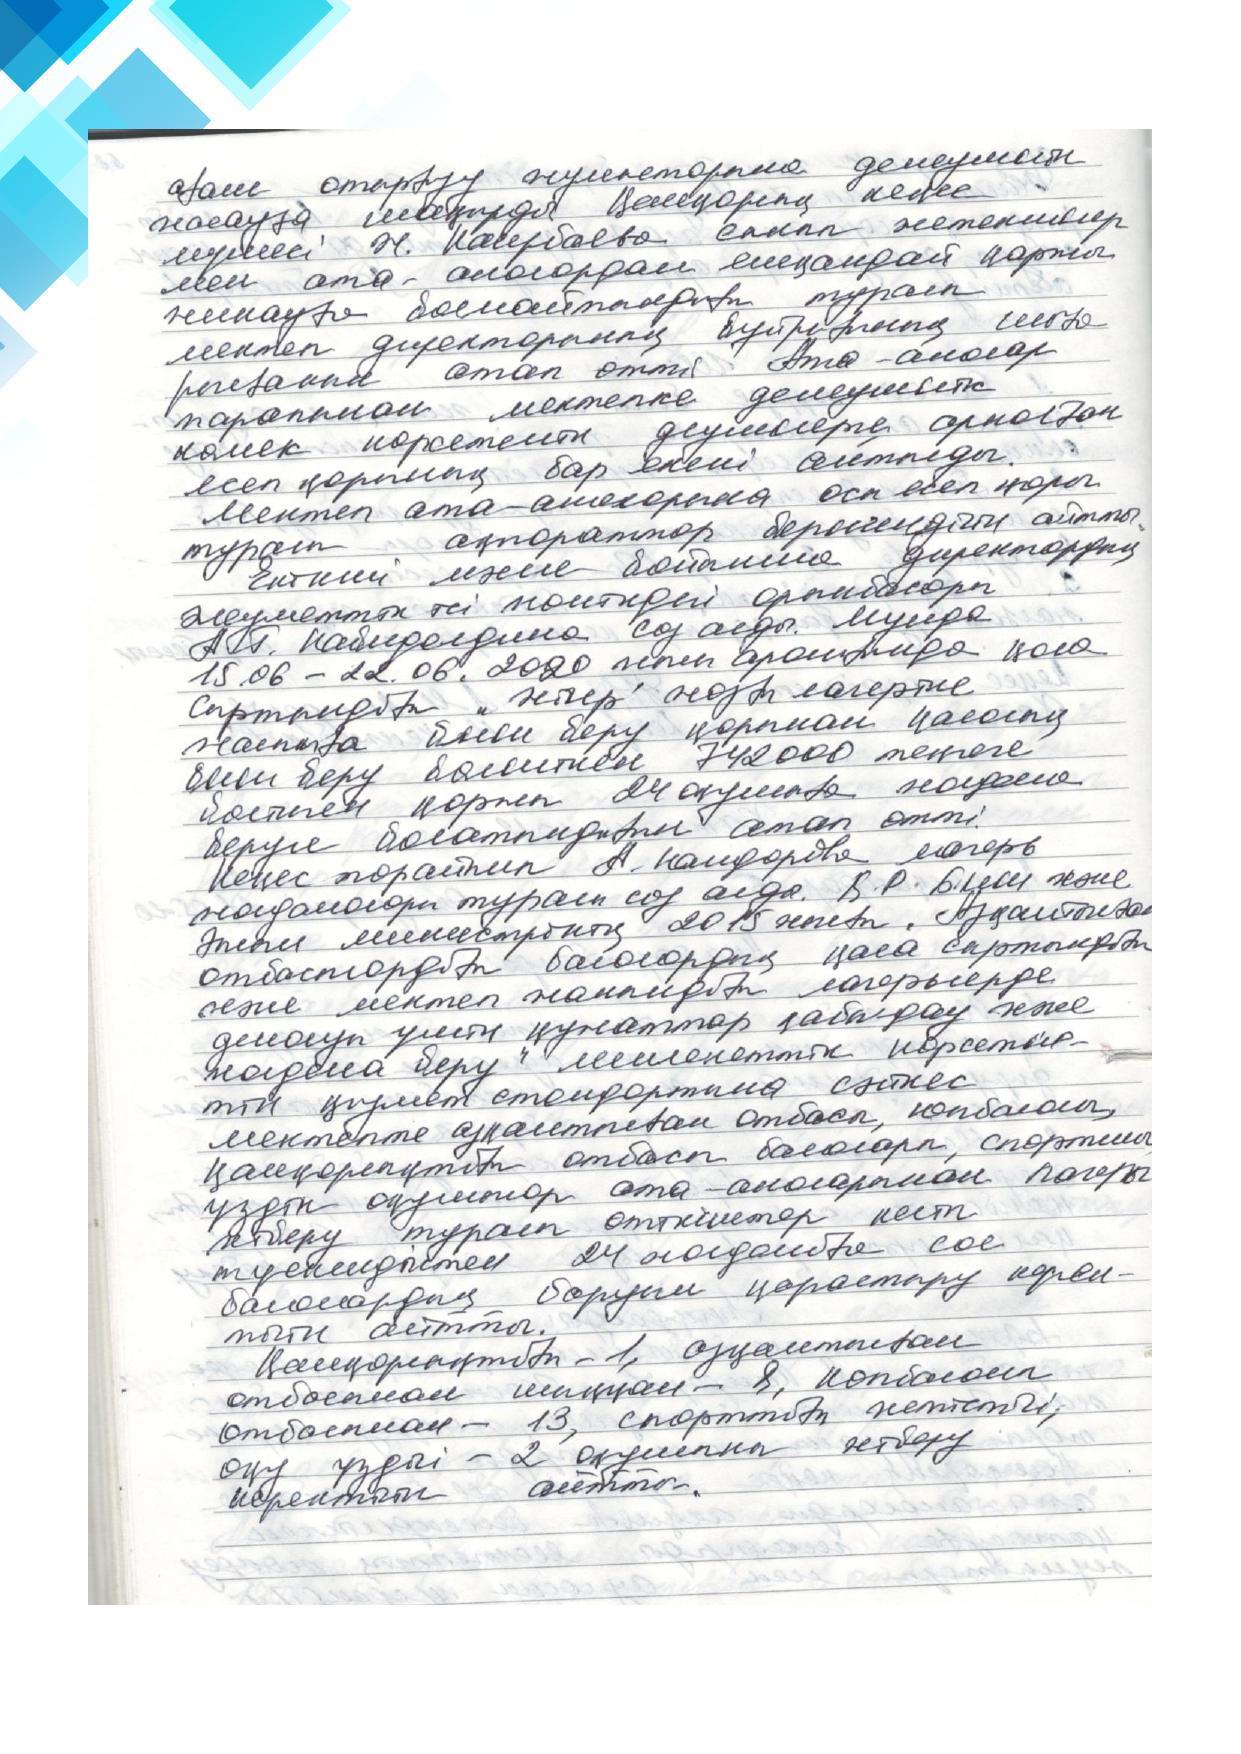 ағаш отырғызу жұмыстарына демеушілік
жасауға шақырды Қамқорлық кеңес
мүшесі Ж. Каирбаева сынып жетекшілер
мен ата-аналардан ешқандай қаржы
жинауға болмайтындығы туралы
мектеп директорының бұйрығының шыға
рылғанын атап өтті. Ата-аналар
тарапынан мектепке демеушілік
көмек көрсететін деушілерге арналған
есеп қорының бар екені айтылды.
Мектеп ата-аналарына осы есеп қоры
туралы ақпараттар берілгендігін айтты.
Екінші мәселе бойынша директордың
әлеуметтік ісі жөніндегі орынбасары
А.Т. Кабидолдина сөз алды. Мұнда
15.06 – 22.06. 2020 жыл аралығында қала
сыртындағы „ жазғы лагеріне
жалпыға білім беру қорынан қаланың
білім беру бөлімінен 742000 теңгеге
бөлінген қаржы 24 оқушыға жолдама
берілу болатындығын атап өтті.
Кеңес төрайымы А. лагерь
жолдамалары туралы сөз алды. Қ.Р. Білім және
ғылым министрінің 2015 жылғы „ Аз қамтылған
отбасылардағы балалардың қала сыртындағы
және мектеп жанындағы лагерьлерде
демалуы үшін құжаттар қабылдау және
жолдама беру" мемлекеттік көрсетіле-
тін қызмет стандартына сәйкес
мектепте азқамтылған отбасы, көпбалалы,
қамқорлықтағы отбасы балалары, спортшы,
үздік оқушылар ата-аналарынан лагерьге
жіберу туралы өтініштер келіп
түскендіктен 24 жолдамаға сол
балалардың баруын қарастыру керек-
тігін айтты.
Қамқорлықтағы – 1, азқамтылған
отбасынан шыққан – 8, көпбалалы
отбасынан – 13, спорттағы жетістігі,
оқу үздігі – 2 оқушыны жіберу
керектігін айтты.